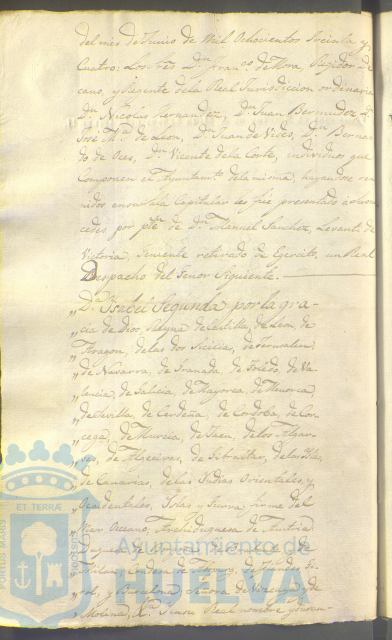 del mes de Junio de Mil Ochocientos treinta y
Cuatro: Los Sres Dn. Franco de Mora Regidor de
cano, y Regente de la Real Jurisdiccion ordinaria
Dn. Nicolas Hernandez, Dn. Juan Bermudez, Dn.
José Ma. de Leon, Dn. Juan de Vides, Dn. Bernar
do de Oces, Dn. Vicente de la Corte, individuos que
Componen el Ayuntamto. de la misma, hayandose reu
nidos en su Sala Capitular les fue presentado á sus mer
cedes por pte. de Dn. Manuel Sanchez, Levanti de
Victoria, Teniente retirado de Egercito, un Real
Despacho del tenor Siguiente.
„ Da. Isabel Segunda por la gra-
„ cia de Dios, Reyna de Castilla, de Leon, de
„ Aragon, de las dos Sicilias, de Jerusalen,
„ de Navarra, de Granada, de Toledo, de Va
„ lencia, de Galicia, de Mayorca, de Menorca,
„ de Sevilla, de Cerdeña, de Cordoba, de Cor
„ cega, de Murcia, de Jaen, de los Algar-
„ ves, de Algeciras, de Gibraltar, de las Yslas
„ de Canarias, de las Yndias Orientales, y
„ Occidentales, Yslas y tierra firme del
mar Oceano, Archiduquesa de Austria
Duquesa de Borgoña, de Brabante y de
Milan, Condesa de Aspurg, de Flandes Ti
rol, y Barcelona, Señora de Vizcaya y de
Molina, &a. En su Real nombre
ET TERRÆ
PORTUS MARIS
CUSTODIA
Ayuntamiento de
HUELVA